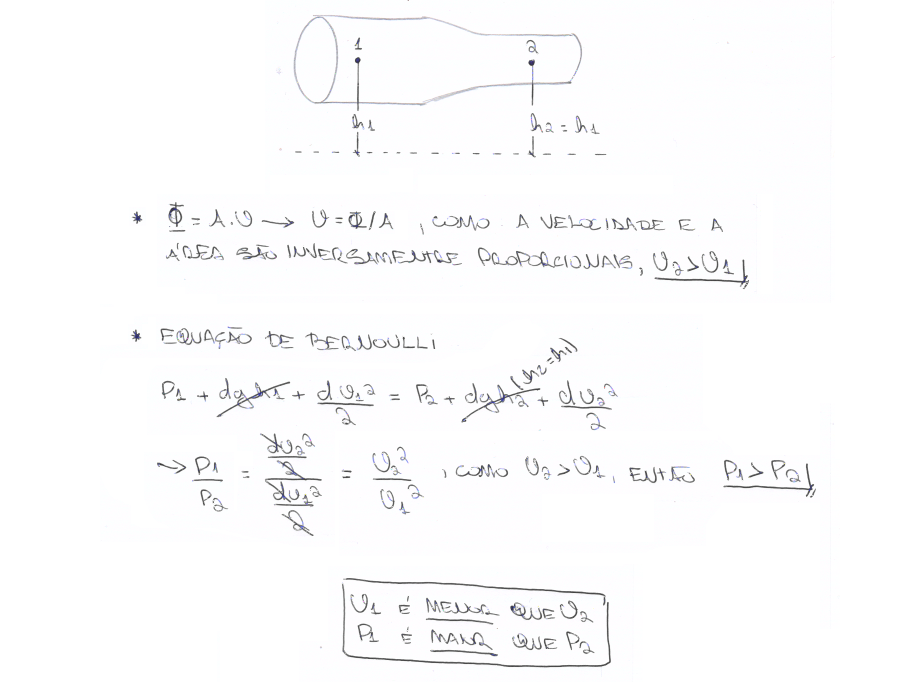 1
2
h1
h2 = h1
* Φ = A.υ → υ = Φ/A , COMO A VELOCIDADE E A
ÁREA SÃO INVERSAMENTRE PROPORCIONAIS, υ2 > υ1
* EQUAÇÃO DE BERNOULLI
P1 + dgh1 + dυ1²/2 = P2 + dgh2 (h2=h1) + dυ2²/2
→ P1/P2 = (dυ2²/2)/(dυ1²/2) = υ2²/υ1² , COMO υ2 > υ1, ENTÃO P1 > P2
υ1 É MENOR QUE υ2
P1 É MAIOR QUE P2